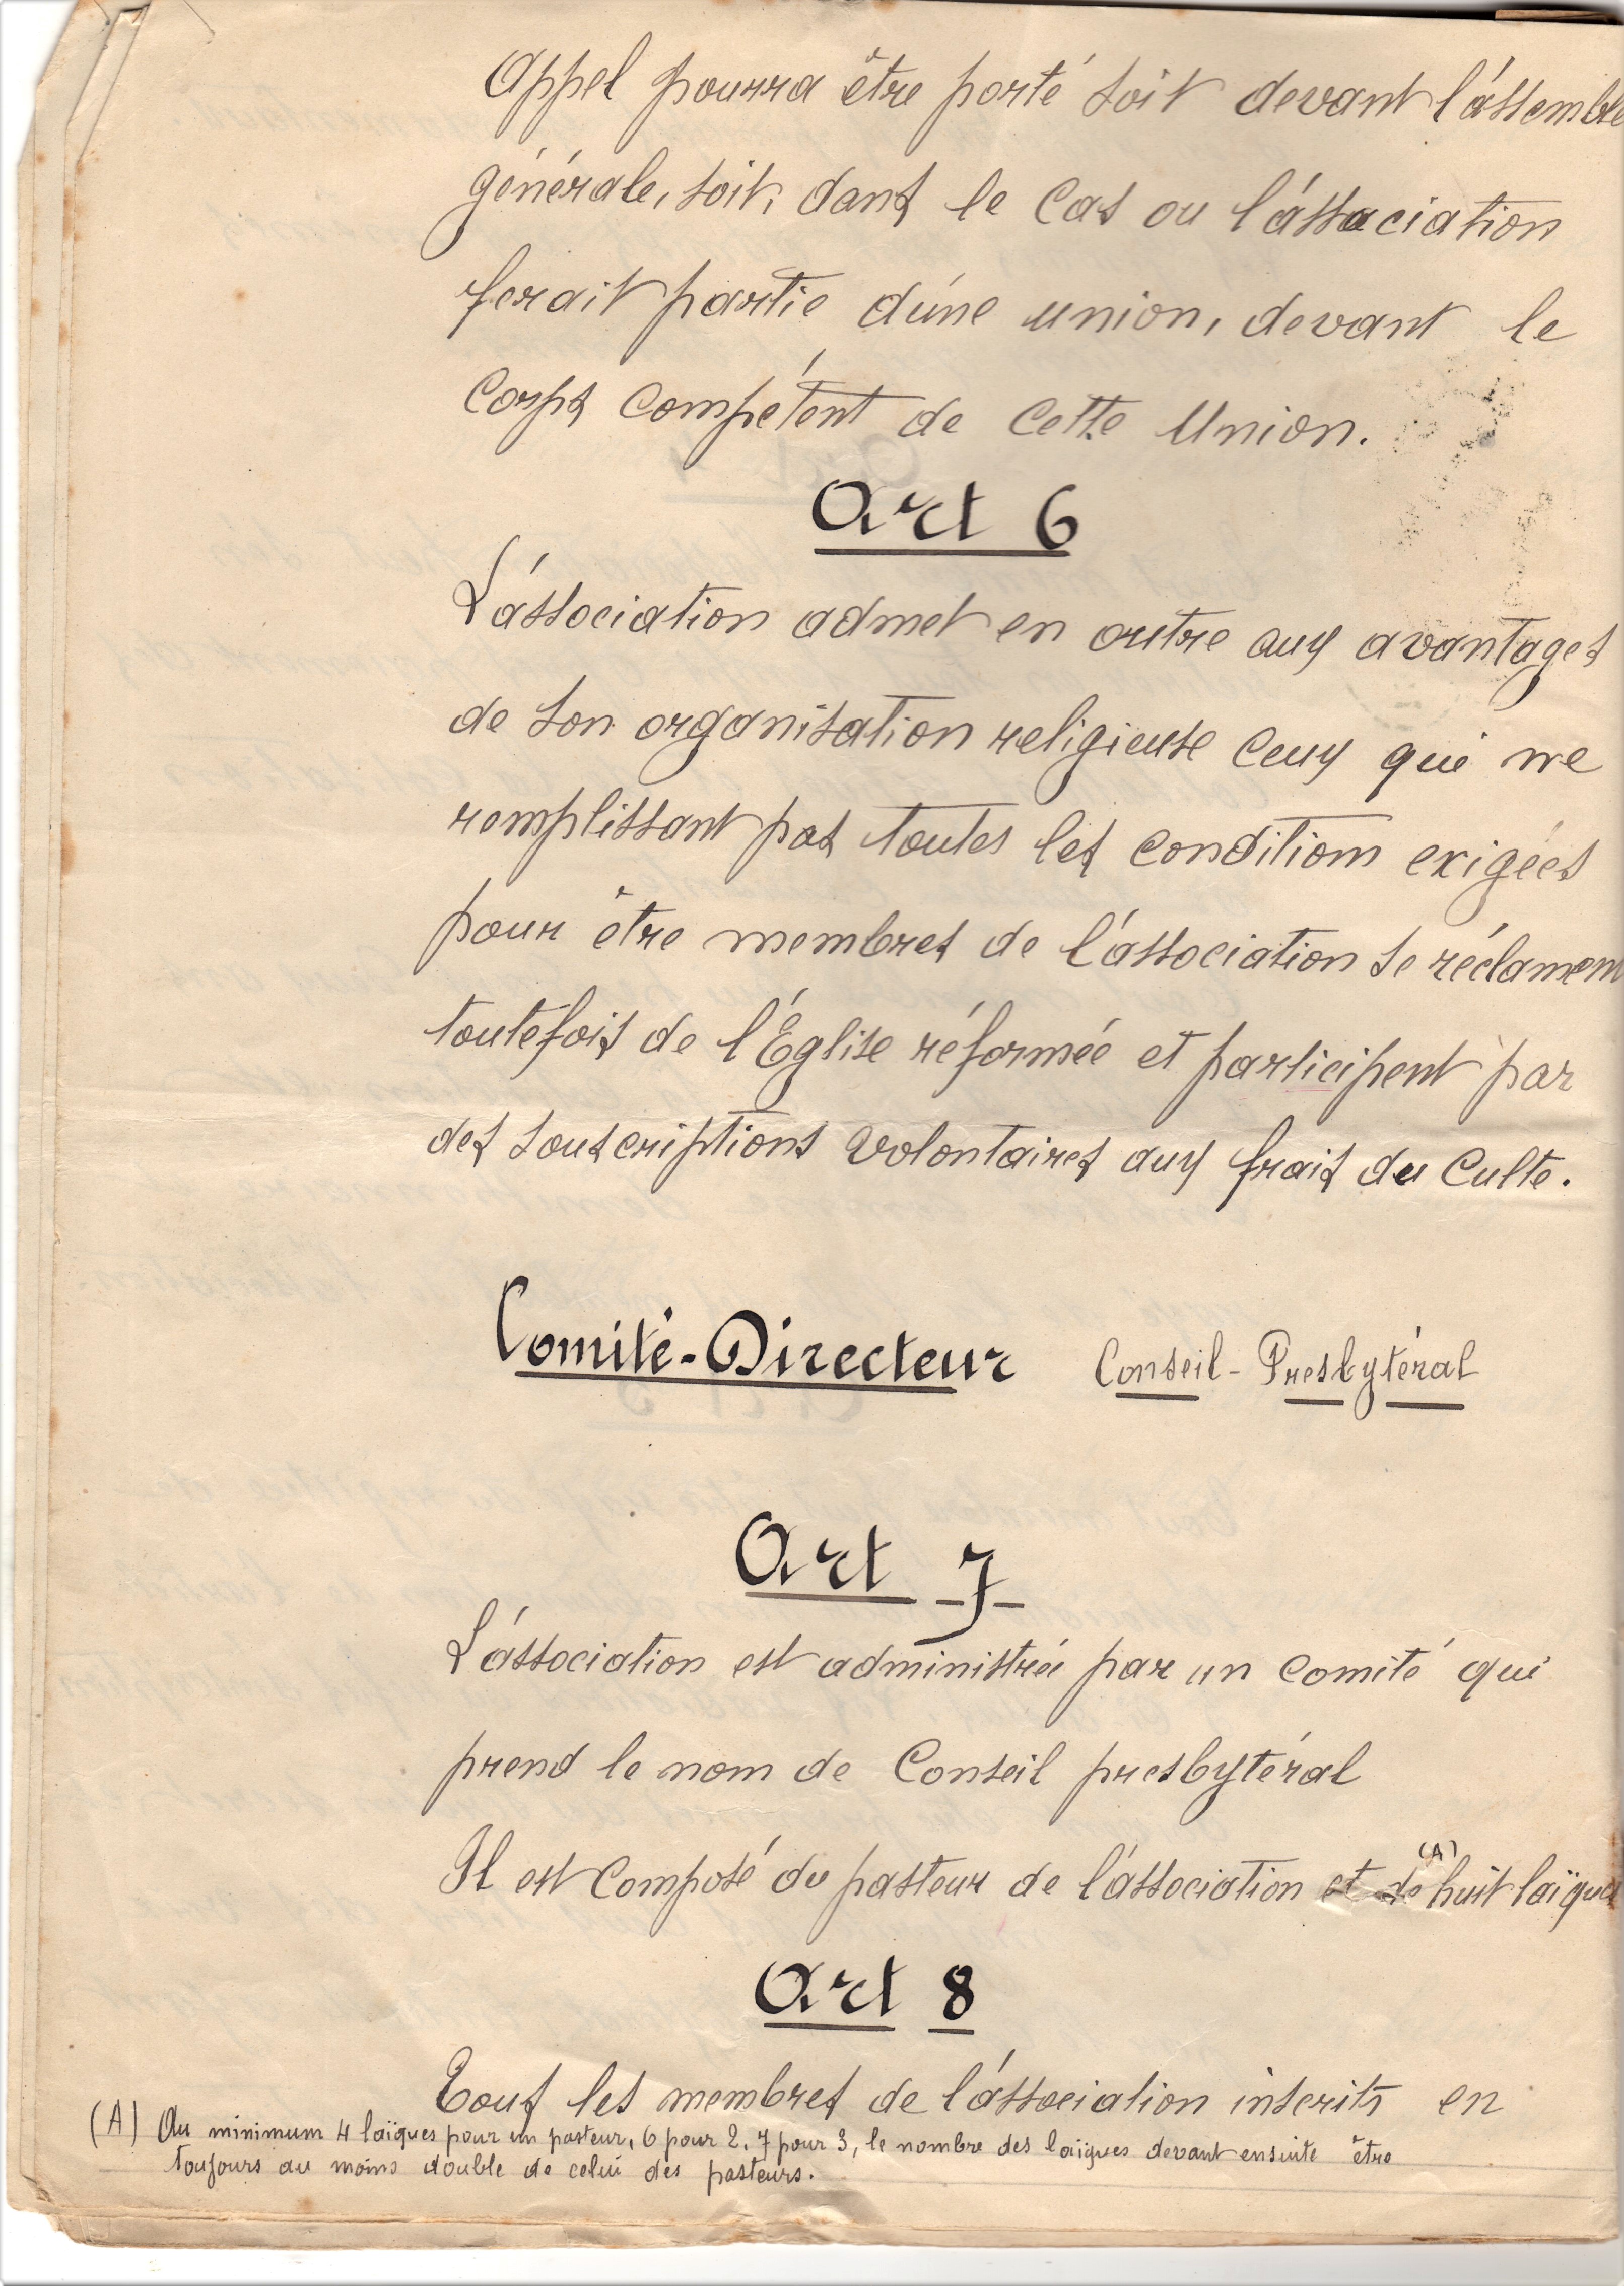 Appel pourra être porté soit devant l'assemblé
générale, soit, dans le cas ou l'association
ferait partie d'une union, devant le
Corps compétent de cette Union.
Art 6
L'association admet en outre aux avantages
de son organisation religieuse ceux qui ne
remplissant pas toutes les conditions exigées
pour être membres de l'association se réclament
toutefois de l'Église réformée et participent par
des souscriptions volontaires aux frais du Culte.
Comité-Directeur Conseil-Presbytéral
Art 7
L'association est administrée par un comité qui
prend le nom de Conseil presbytéral
Il est composé du pasteur de l'association et de (A) huit laïques
Art 8
Tous les membres de l'association inscrits en
(A) Au minimum 4 laïques pour un pasteur, 6 pour 2, 7 pour 3, le nombre des laïques devant ensuite être
toujours au moins double de celui des pasteurs.